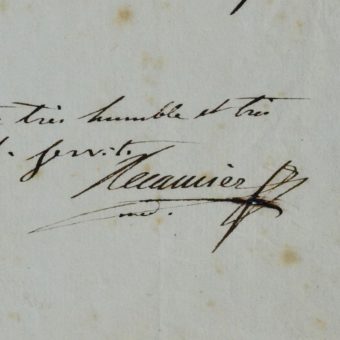 très humble et très
Servit.
Recamier